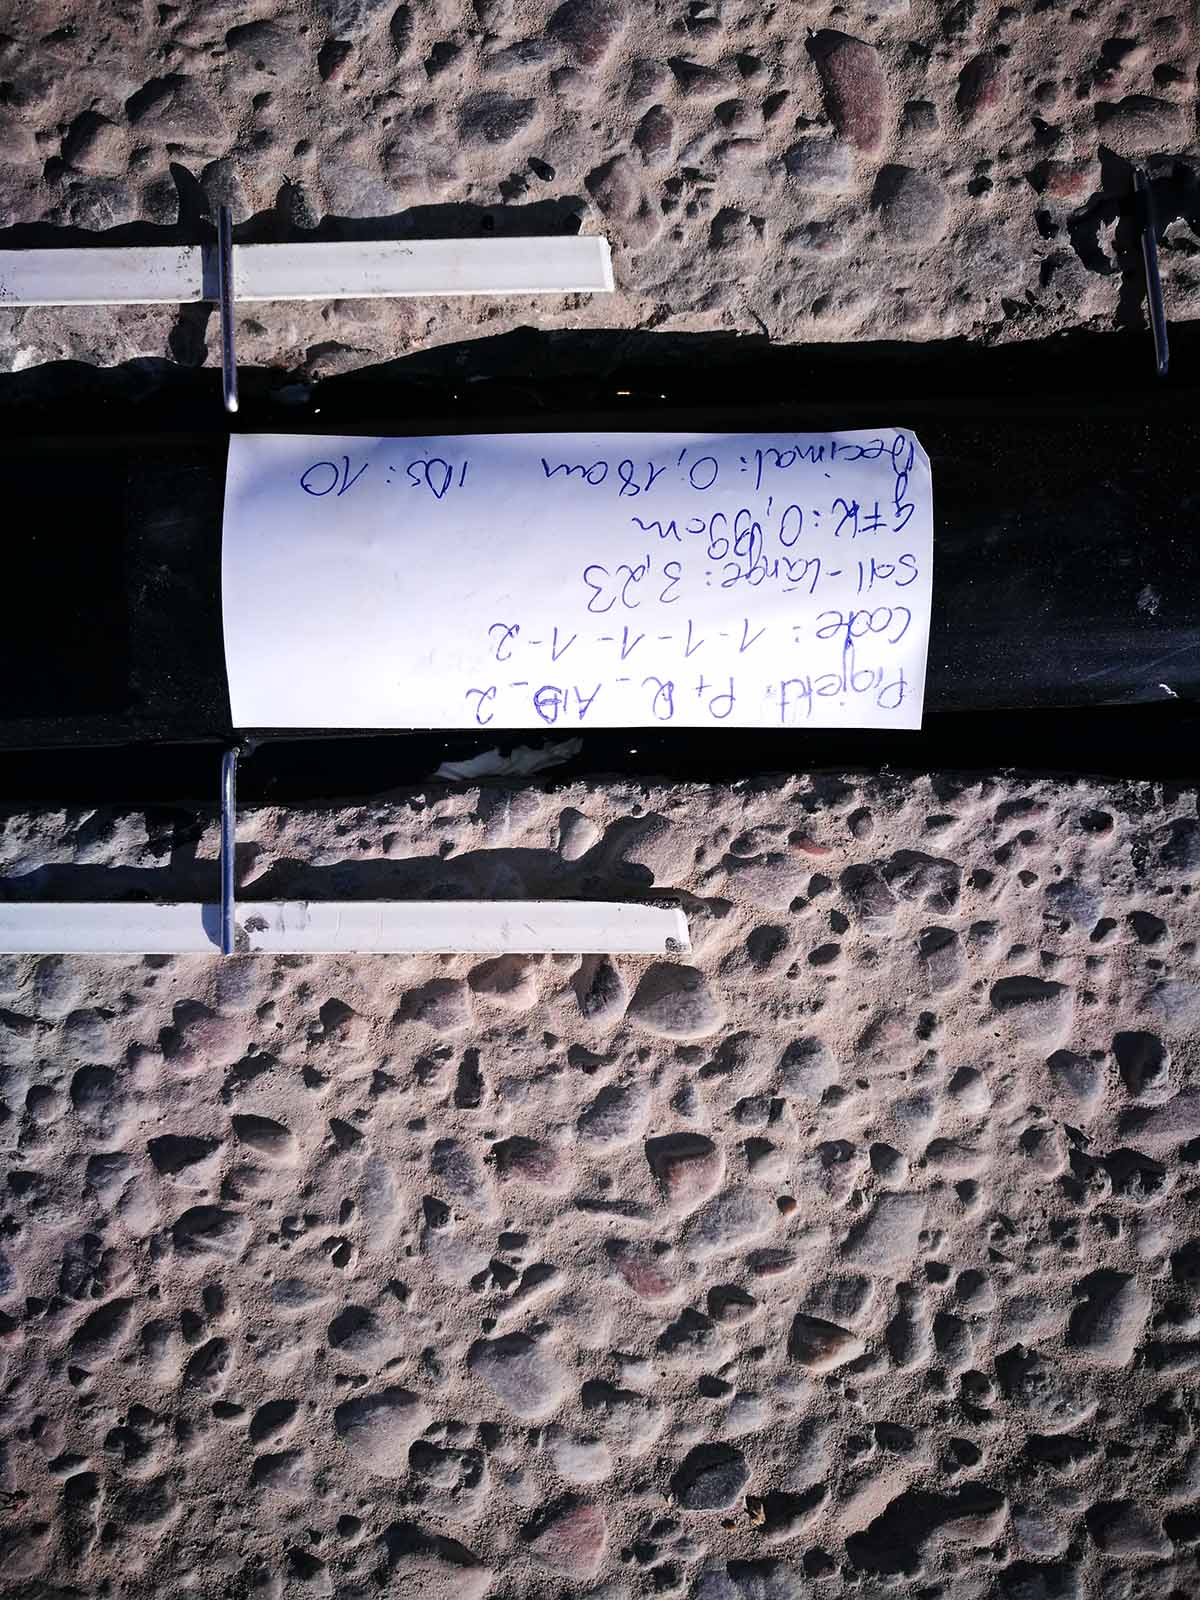 Projekt: P+R_AIB_2
Code: 1-1-1-1-2
Soll-Länge: 3,23
GFK:
Decimal: 0,18cm IDs: 10